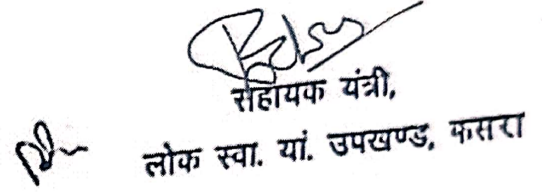 सहायक यंत्री,
लोक स्वा. यां. उपखण्ड, कसरा